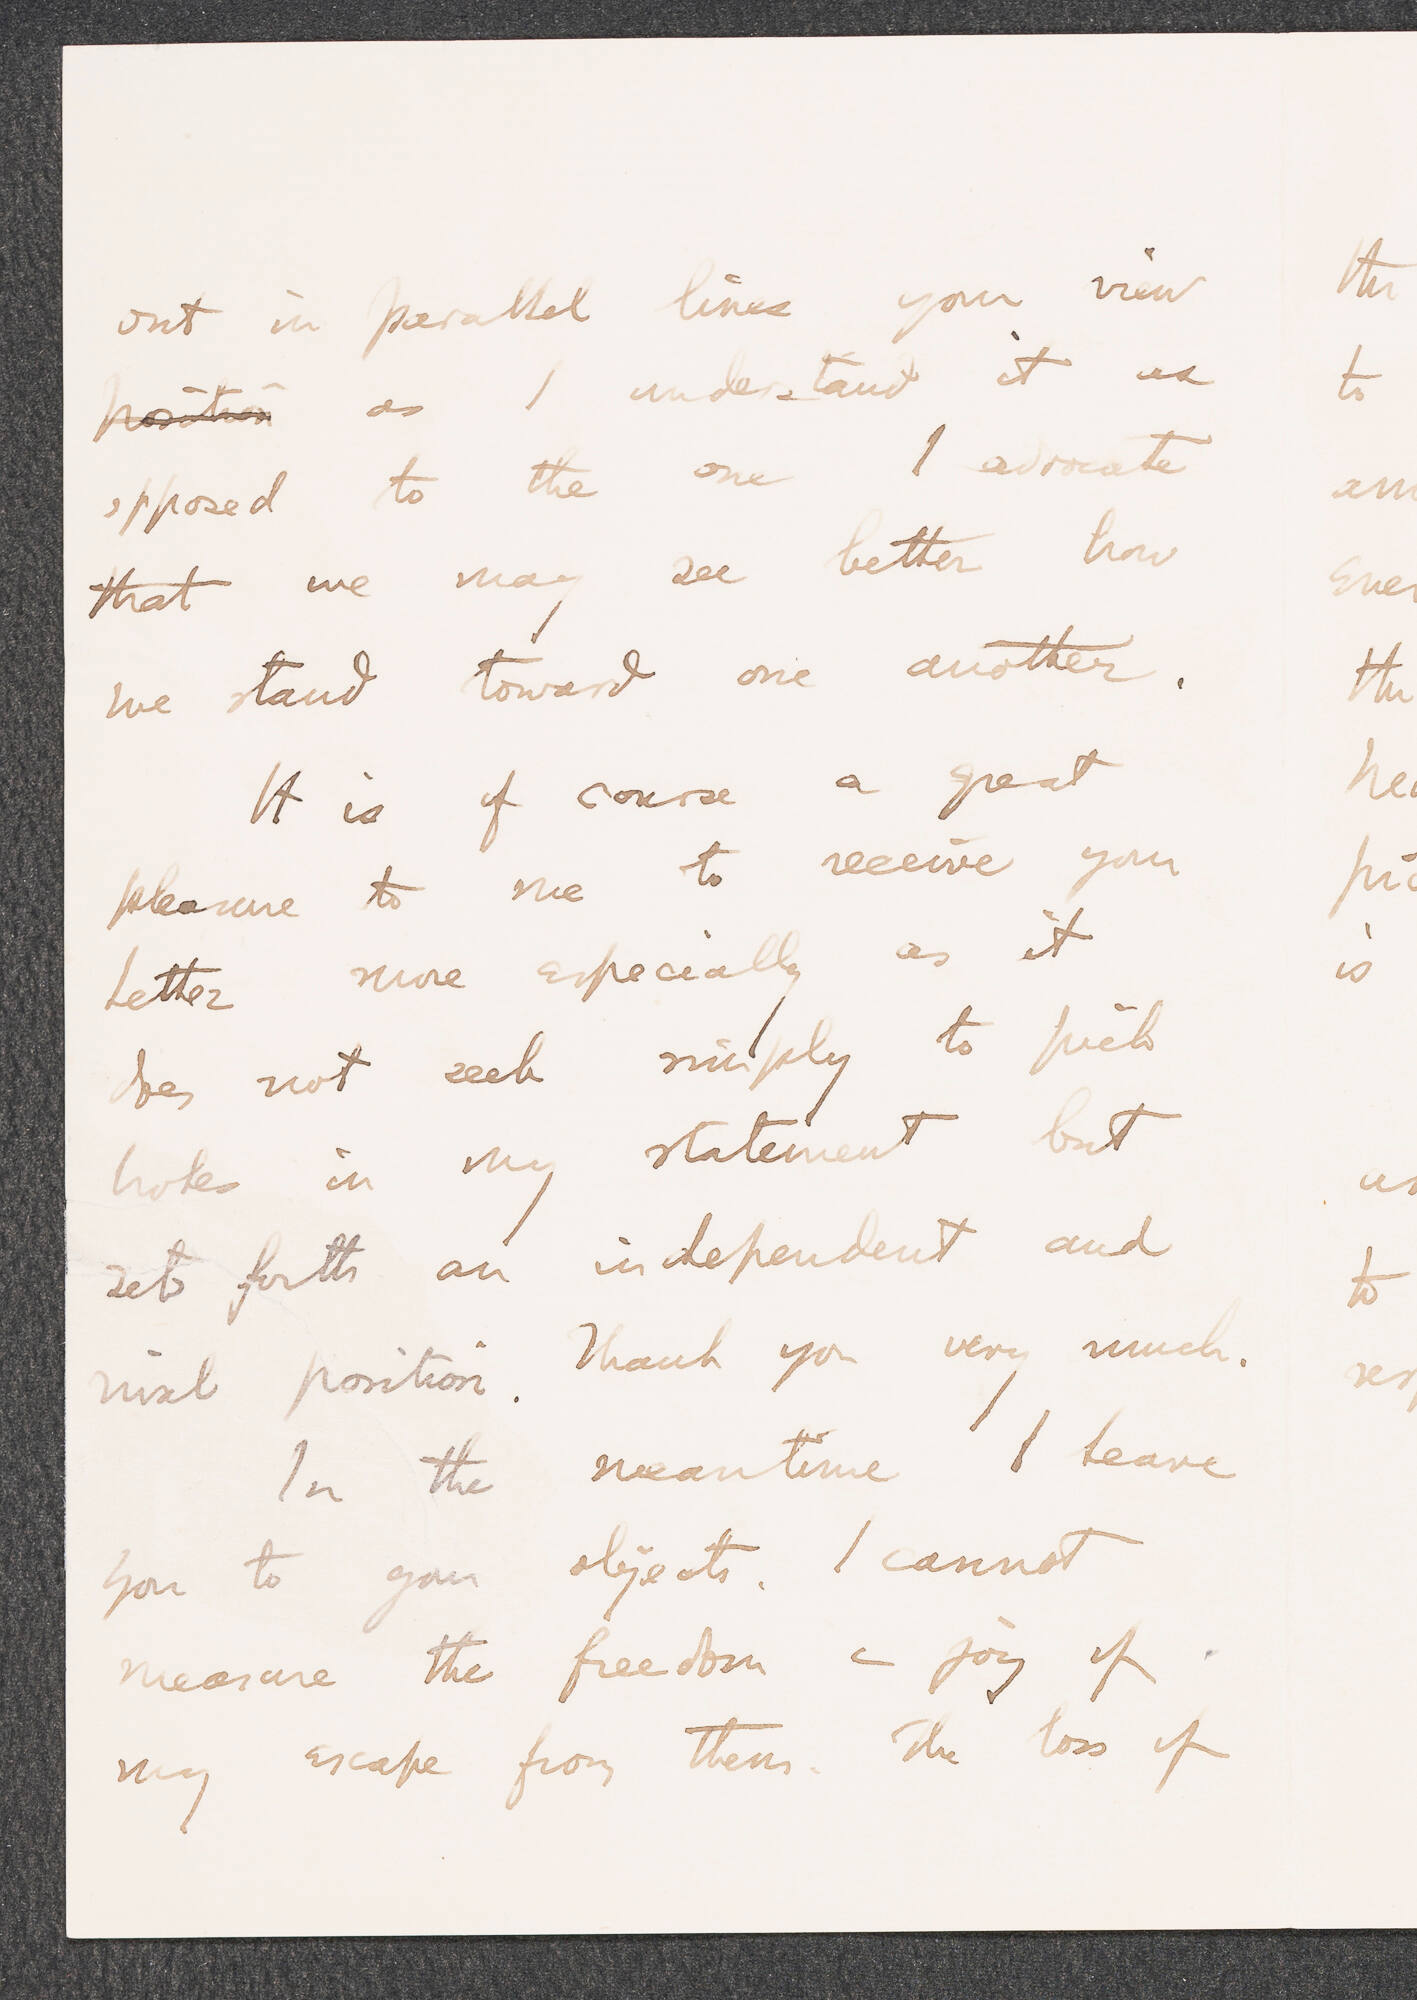 out in parallel lines your view
position as I understand it as
opposed to the one I advocate
that we may see better how
we stand toward one another.
It is of course a great
pleasure to me to receive your
letter more especially as it
does not seek simply to pick
holes in my statement but
sets forth an independent and
rival position. Thank you very much.
In the meantime I leave
you to your objects. I cannot
measure the freedom & joy of
my escape from them. The loss of
to
is
to